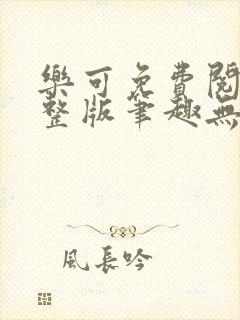 樂可免費閱
整版筆趣無
風長吟